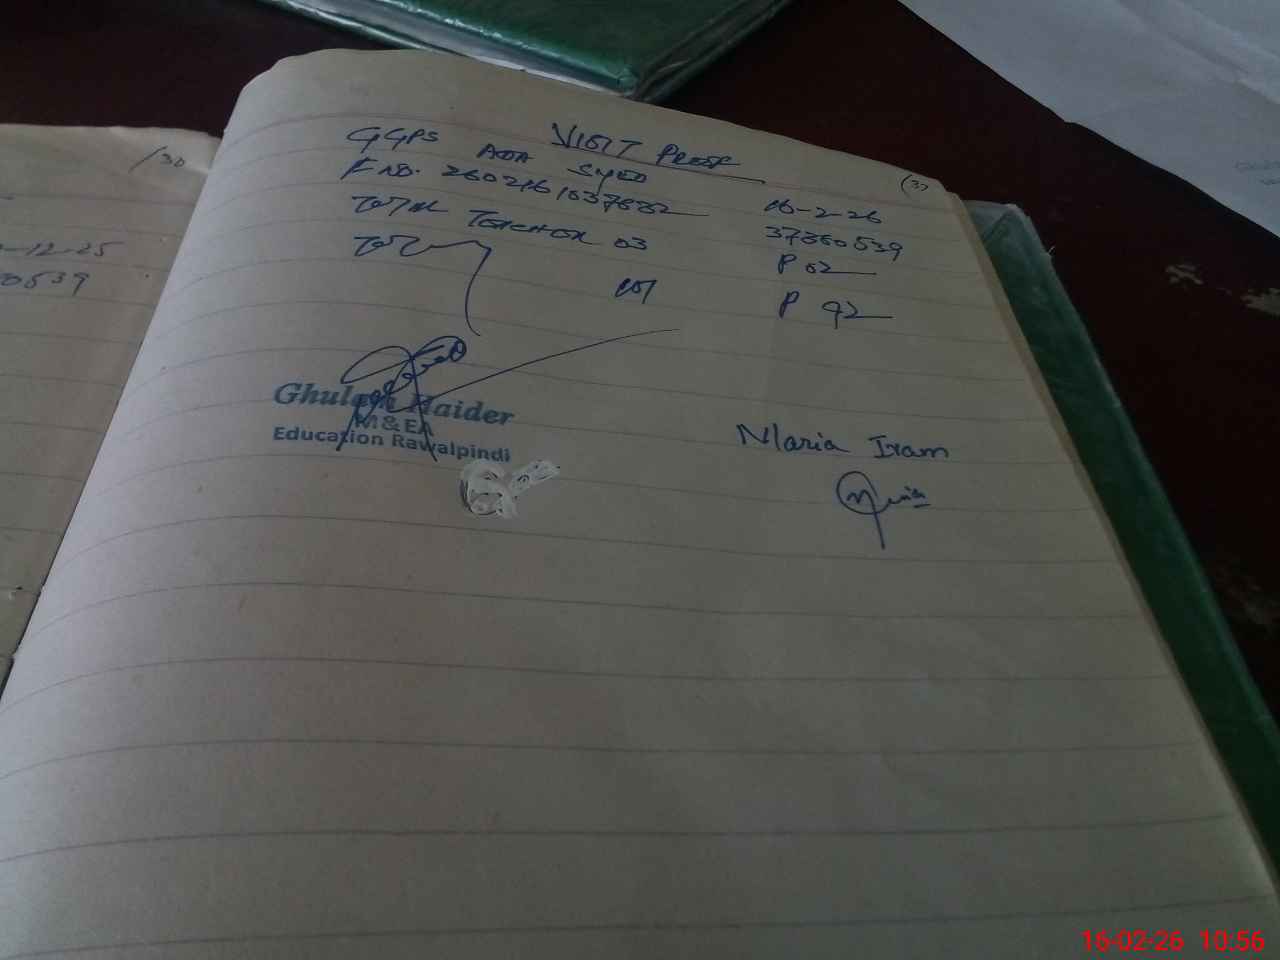 /30
-12-25
0539
VISIT PROOF
(37
GGPS ADA SYED 16-2-26
F NO. 37360539
Total Teacher 03 P 02
Total 101 P 92
Ghulam Haider
M&EA
Education Rawalpindi
Maria Iram
16-02-26 10:56